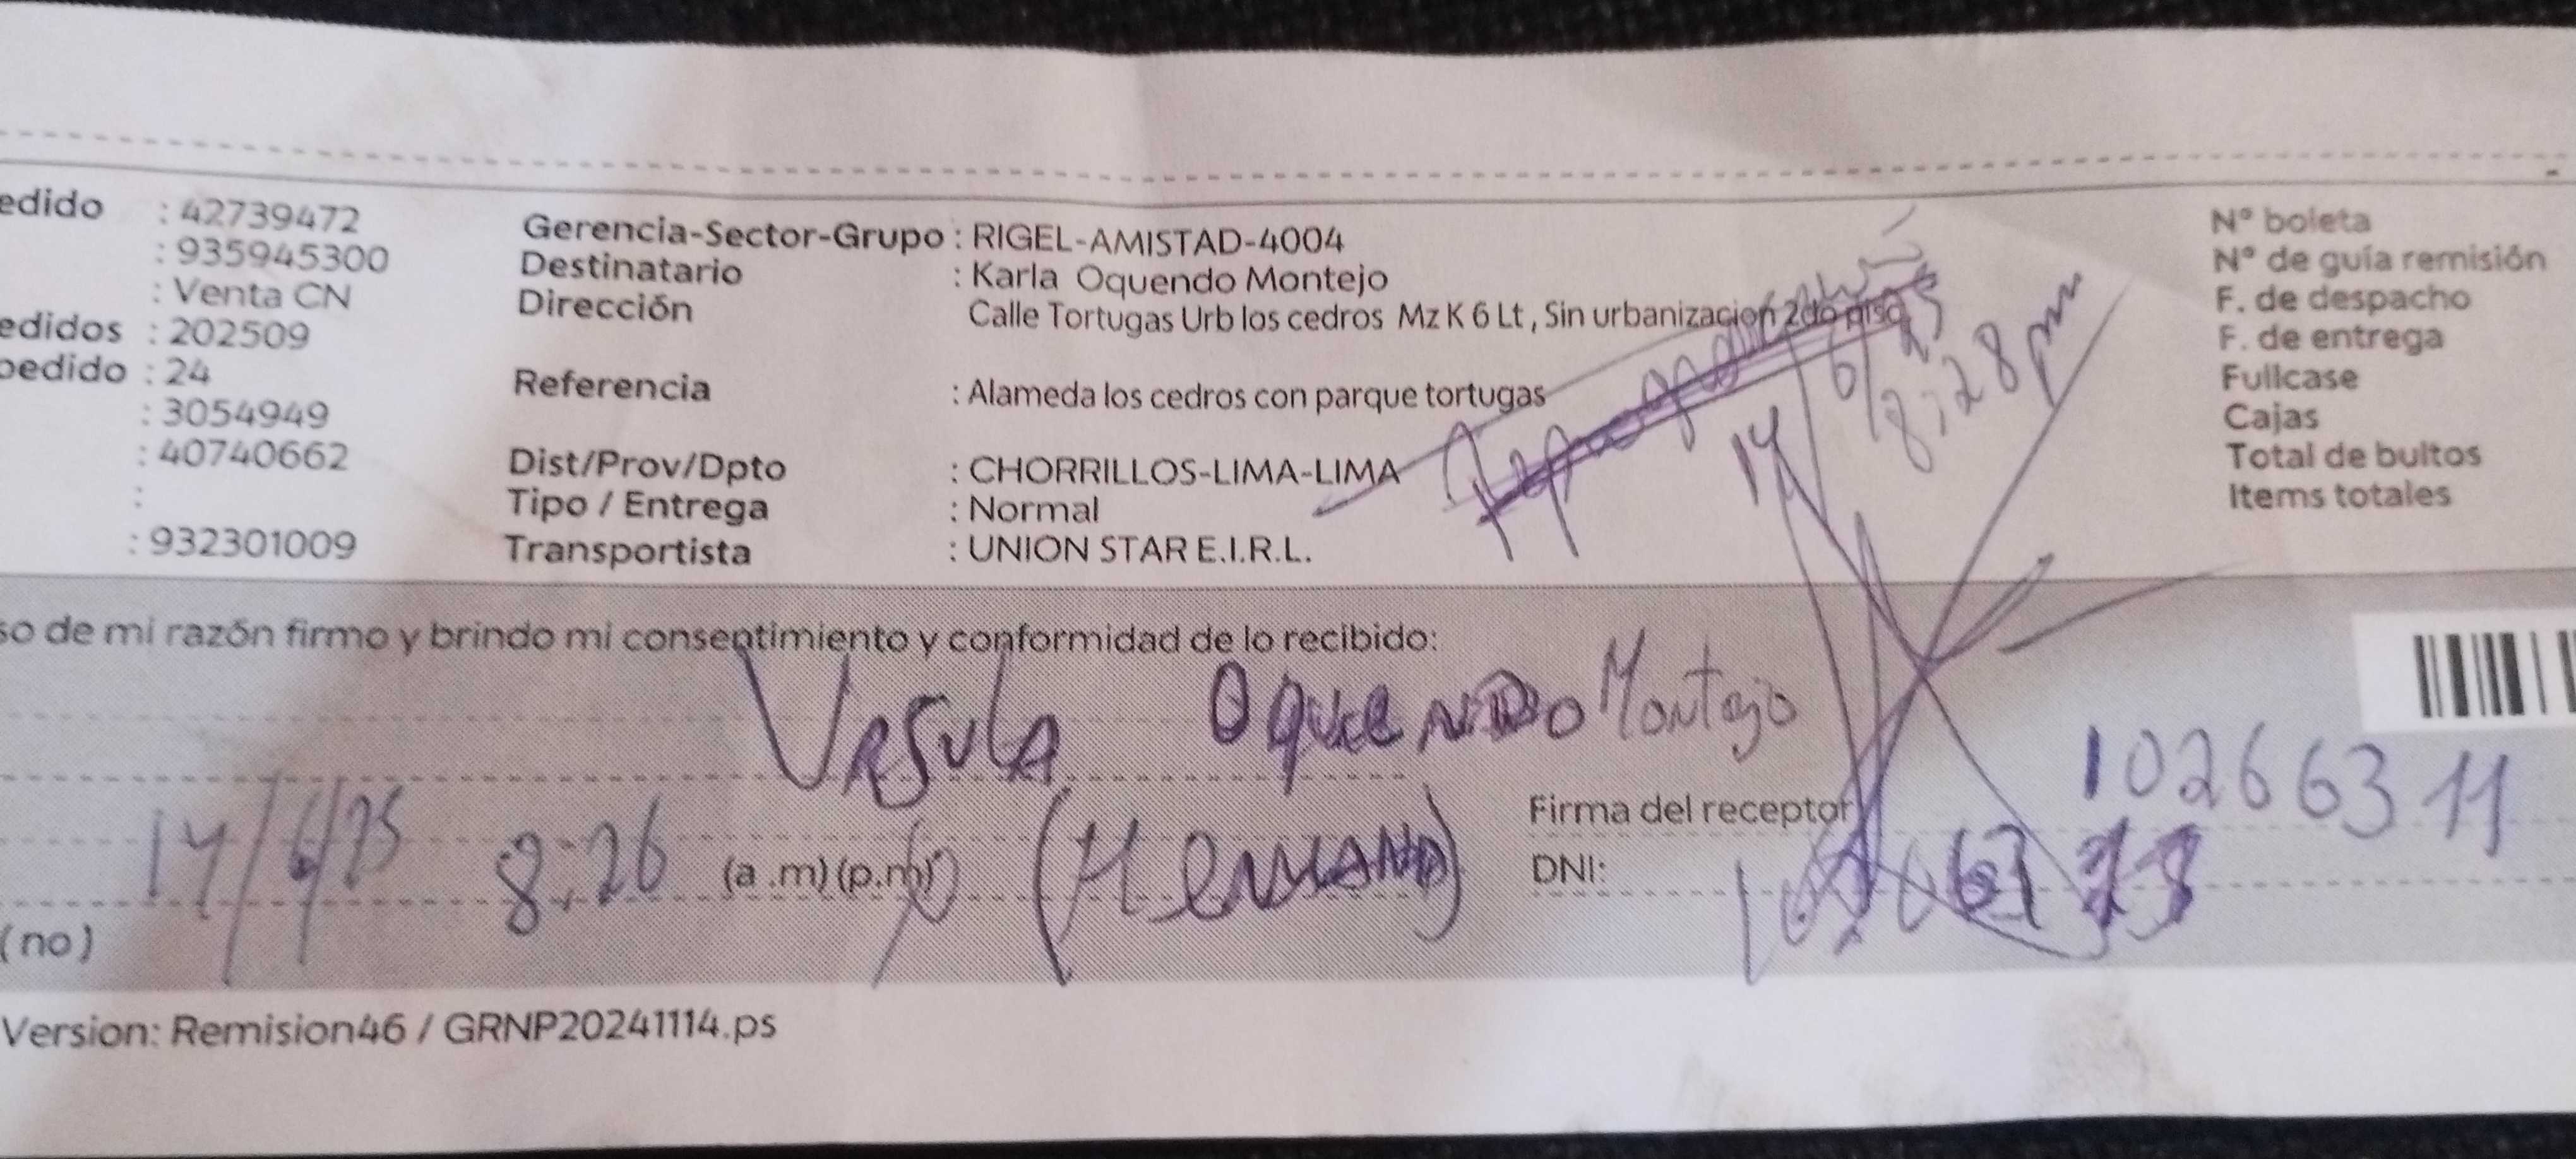 edido : 42739472
: 935945300
: Venta CN
edidos : 202509
pedido : 24
: 3054949
: 40740662
:
: 932301009
Gerencia-Sector-Grupo : RIGEL-AMISTAD-4004
Destinatario : Karla Oquendo Montejo
Dirección Calle Tortugas Urb los cedros Mz K 6 Lt , Sin urbanizacion 2do piso
Referencia : Alameda los cedros con parque tortugas
Dist/Prov/Dpto : CHORRILLOS-LIMA-LIMA
Tipo / Entrega : Normal
Transportista : UNION STAR E.I.R.L.
14/6/25
8:28 pm
N° boleta
N° de guía remisión
F. de despacho
F. de entrega
Fullcase
Cajas
Total de bultos
Items totales
so de mi razón firmo y brindo mi consentimiento y conformidad de lo recibido:
Ursula Oquendo Montejo
14/6/25 8:26 (a .m) (p.m) (Hermana)
Firma del receptor
10266311
DNI:
(no)
Version: Remision46 / GRNP20241114.ps